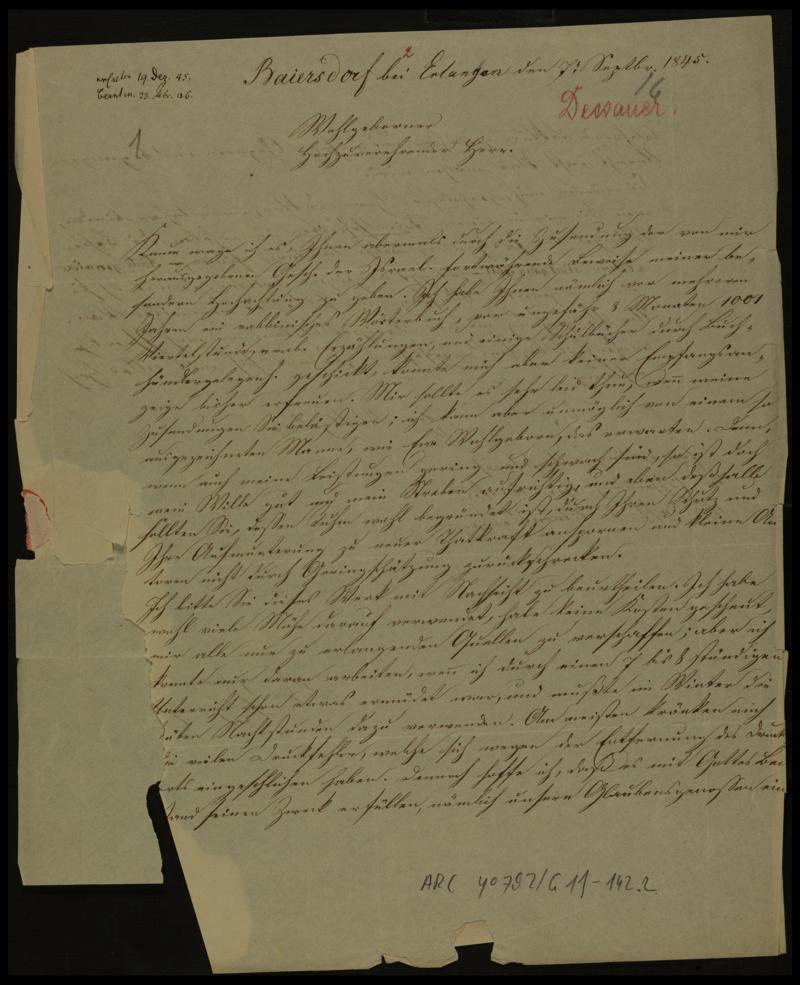 erhalten 19. Dez. 45.
beantw. 23. Febr. 46.
2
Baiersdorf bei Erlangen den 7t Septbr. 1845.
16
Dessauer.
1
Wohlgeborner
Hochzuverehrender Herr.
Kaum wage ich es, Ihnen abermals durch die Zusendung der von mir
herausgegebenen Gesch. der Israel. fortwährende Beweise meiner be-
sondern Hochachtung zu geben. Ich habe Ihnen nämlich vor mehreren
Jahren ein rabbinisches Wörterbuch, vor ungefähr 8 Monaten 1001
Viertelstund, Erzählungen und einige Schulbücher durch Buch-
händlergelegenh. geschickt, konnte mich aber keiner Empfangsan-
zeige bisher erfreuen. Mir sollte es sehr leid thun, wenn meine
Zusendungen Sie belästigen; ich kann aber unmöglich von einem so
ausgezeichneten Manne, wie Euer Wohlgeborn, das erwarten. Denn,
wenn auch meine Leistungen gering und schwach sind, so ist doch
mein Wille gut und mein Streben aufrichtig, und eben deßhalb
sollten Sie, dessen Ruhm wohl begründet ist, durch Ihren Schutz und
Ihre Aufmunterung zu neuer Thatkraft anspornen und kleine Au
toren nicht durch Geringschätzung zurückschrecken.
Ich bitte Sie dieses Werk mit Nachsicht zu beurtheilen. Ich habe
wohl viele Mühe darauf verwendet, habe keine Kosten gescheut,
mir alle nur zu erlangenden Quellen zu verschaffen; aber ich
konnte nur daran arbeiten, wenn ich durch einen 7 bis 8 stündigen
Unterricht schon etwas ermüdet war, und mußte im Winter die
äten Nachtstunden dazu verwenden. Am meisten kränken mich
die vielen Druckfehler, welche sich wegen der Entfernung des Druck
orts eingeschlichen haben. Dennoch hoffe ich, daß es mit Gottes Bei
stand seinen Zweck erfüllen, nämlich unsern Glaubensgenossen ein
ARC 4o 792/G 11-142.2